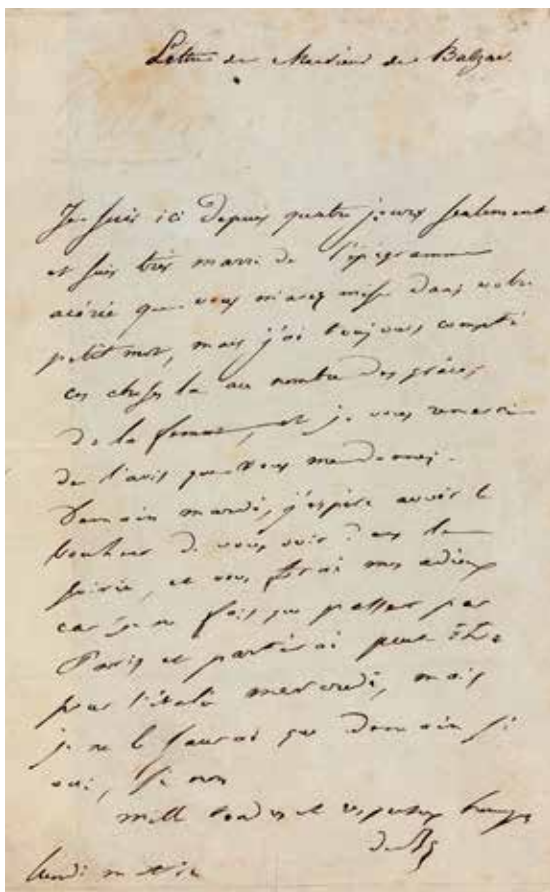 Lettre de Monsieur de Balzac.
Je suis ici depuis quatre jours seulement
et suis très marri de l'épigramme
acérée que vous m'avez mise dans votre
petit mot, mais j'ai toujours compté
ces choses la au nombre des grâces
de la femme, et je vous remercie
de l'avis que vous me donnez.
Demain mardi, j'espère avoir le
bonheur de vous voir dans la
soirée, et vous ferai mes adieux
car je ne fais que passer par
Paris et partirai peut être
pour l'italie mercredi, mais
je ne le saurai que demain si
oui, si non
mille tendres et respectueux hommages
de Bc
lundi matin